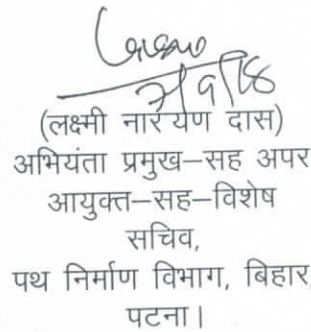 (लक्ष्मी नारायण दास)
अभियंता प्रमुख–सह अपर
आयुक्त–सह–विशेष
सचिव,
पथ निर्माण विभाग, बिहार
पटना।